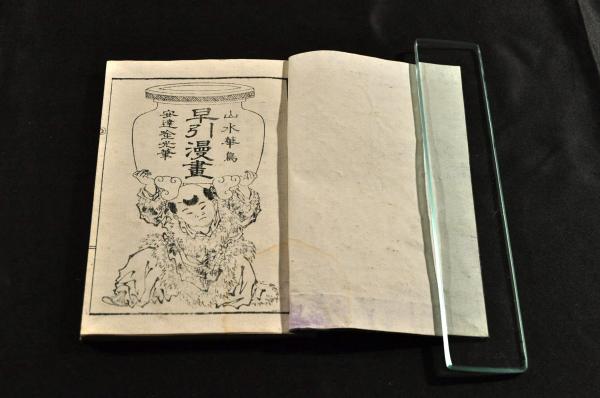 山水華鳥
早引漫畫
安達吟光筆